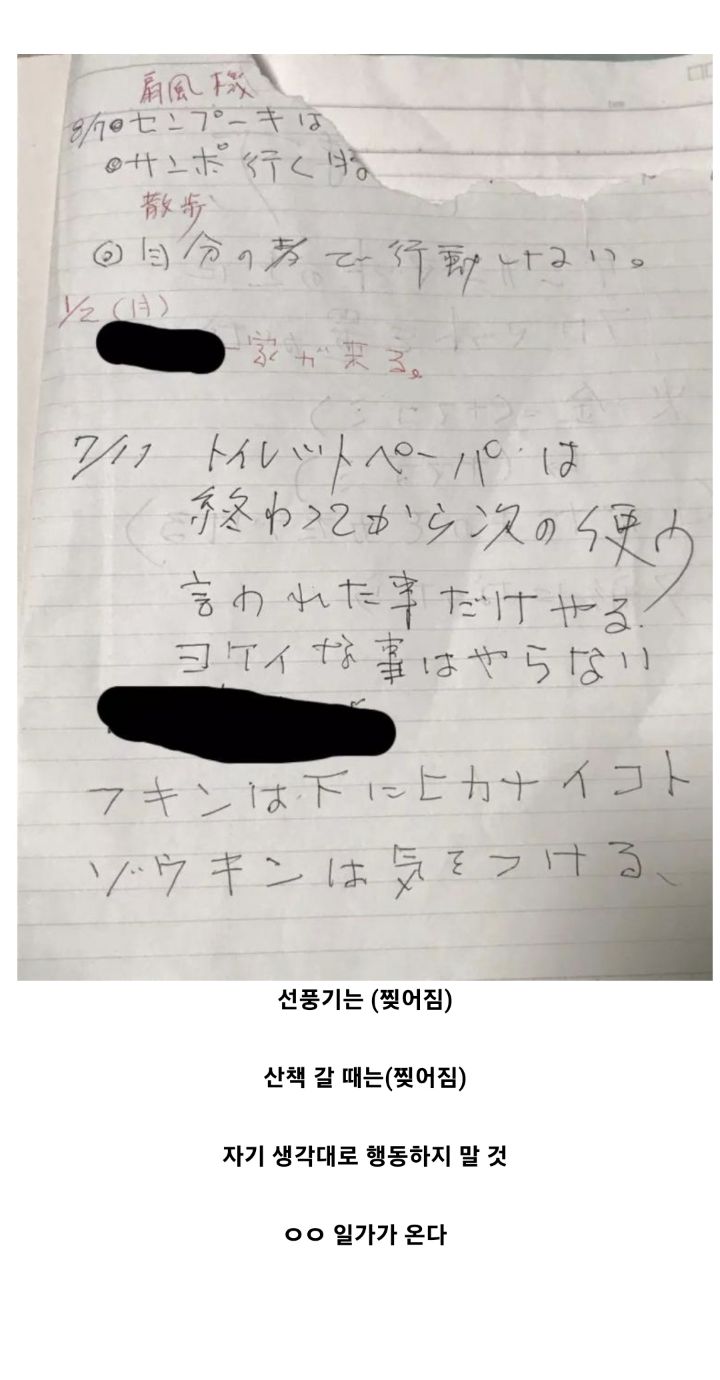 扇風機
8/7◎センプーキは
◎サンポ行く時
散歩
◎自分の考で行動しない。
1/2(月)
一家が来る。
7/17 トイレットペーパーは
終わってから次の使う
言われた事だけやる.
ヨケイな事はやらない
フキンは下にヒカナイコト
ゾウキンは気をつける、
선풍기는 (찢어짐)
산책 갈 때는(찢어짐)
자기 생각대로 행동하지 말 것
ㅇㅇ 일가가 온다